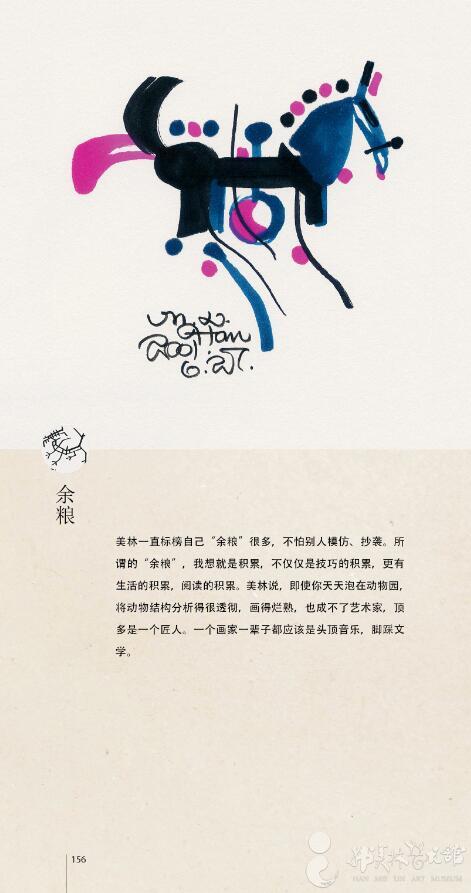 M.L.
Han
2001.
6.27.
余粮
美林一直标榜自己“余粮”很多，不怕别人模仿、抄袭。所
谓的“余粮”，我想就是积累，不仅仅是技巧的积累，更有
生活的积累，阅读的积累。美林说，即使你天天泡在动物园，
将动物结构分析得很透彻，画得烂熟，也成不了艺术家，顶
多是一个匠人。一个画家一辈子都应该是头顶音乐，脚踩文
学。
156
韩美林艺术馆
HAN MEI LIN ART MUSEUM